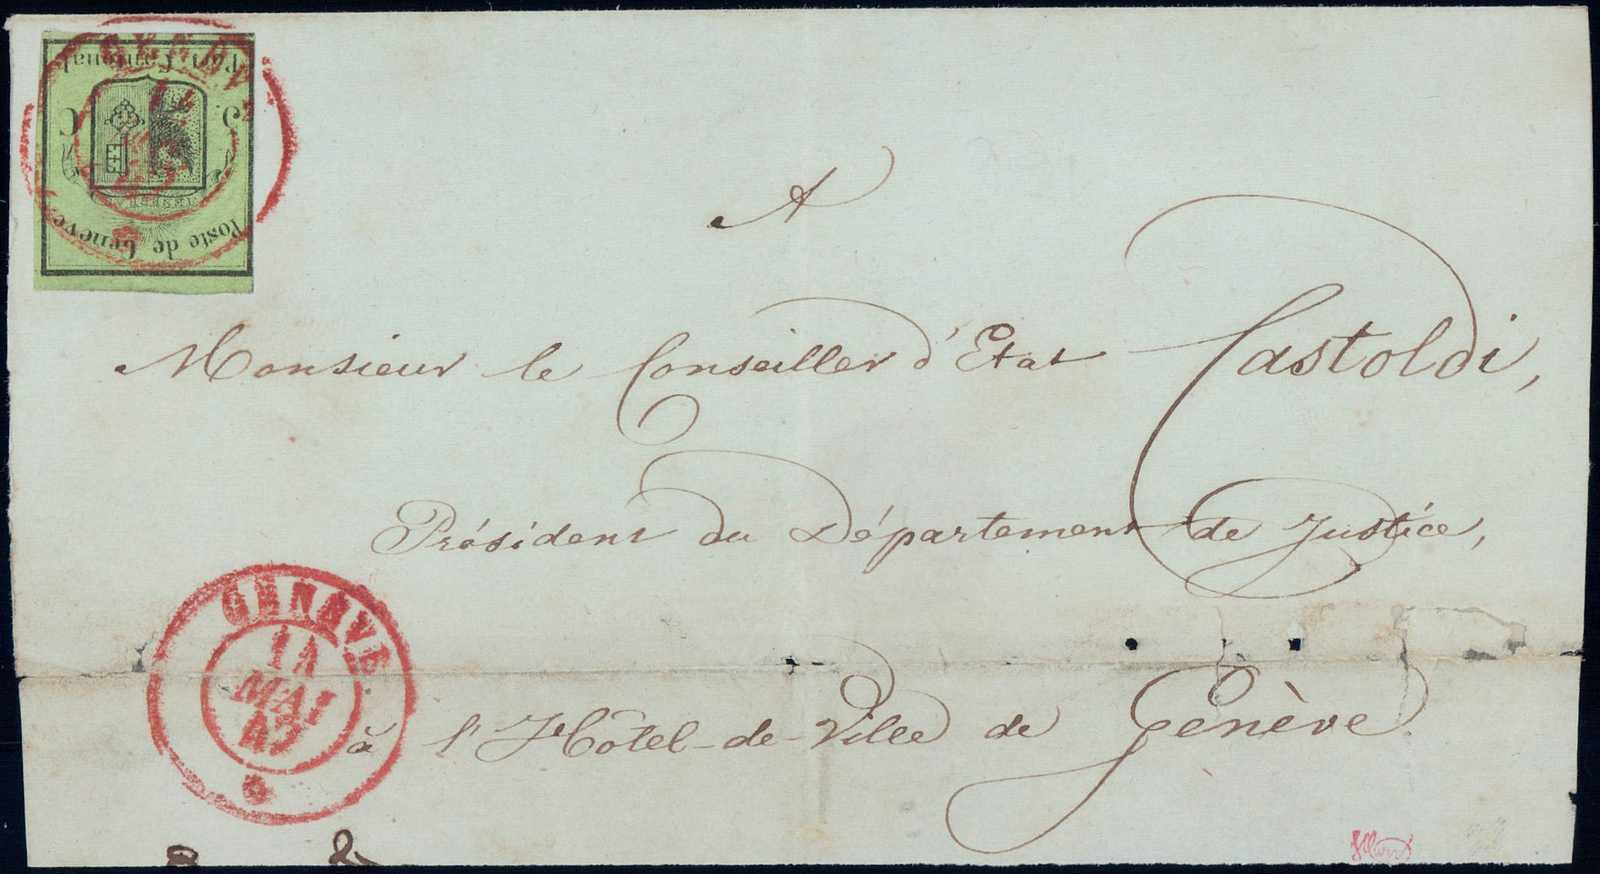 Port Cantonal
5 C
Poste de Genève
GENÈV
A
Monsieur le Conseiller d'Etat Castoldi,
Président du Département de Justice,
à l'Hôtel-de-Ville de Genève
GENÈVE
14
MAI
47